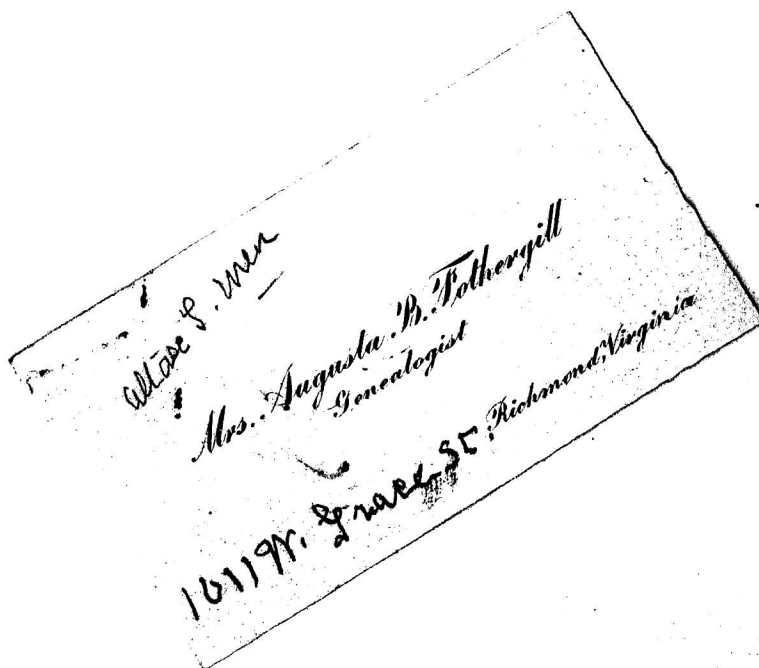 Mrs. Augusta B. Fothergill
Genealogist
W. Grace St, Richmond, Virginia